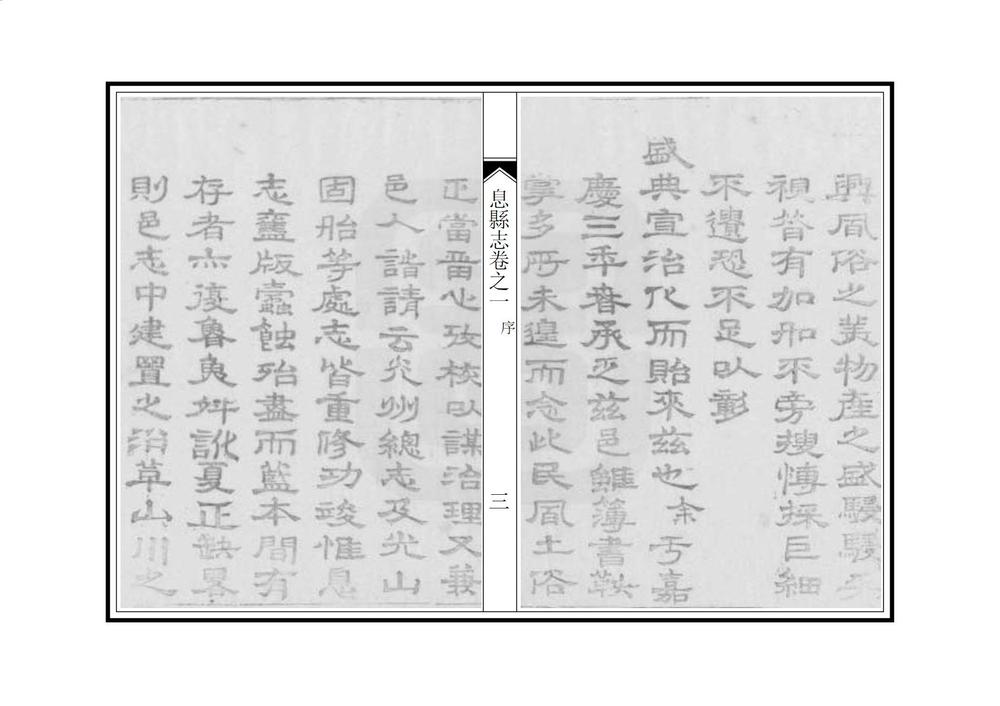 興風俗之美物産之盛駸駸乎
視昔有加而不旁搜愽採巨細
不遺恐不足以彰
盛典宣治化而貽來茲也余于嘉
慶三年春承乏茲邑雖薄書鞅
掌多所未遑而念此民風土俗
息縣志卷之一
序
三
正當畱心攷核以謀治理又兼
邑人諸請云光州總志及光山
固始等處志皆重修功竣惟息
志舊版蠹蝕殆盡而藍本間有
存者亦復魯魚舛訛夏正缺畧
則邑志中建置之沿革山川之